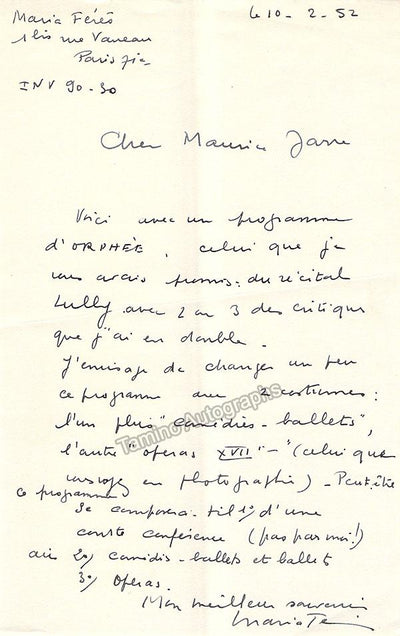 Maria Férès
1 bis rue Vaneau
Paris 7e
INV 90-30
le 10-2-52
Cher Maurice Jarre
Voici avec un programme
d'ORPHÉE, celui que je
vous avais promis. du récital
Lully avec 2 ou 3 des critiques
que j'ai en double.
J'envisage de changer un peu
ce programme avec 2 costumes:
l'un plus "comédies-ballets",
l'autre "opéras XVII" - (celui que
vous voyez en photographie) - Peut-être
ce programme
se composera-t-il 1º) d'une
courte conférence (pas par moi!)
2º) comédies-ballets et ballets
3º) opéras.
Mon meilleur souvenir
Maria Férès
Tamino Autographs